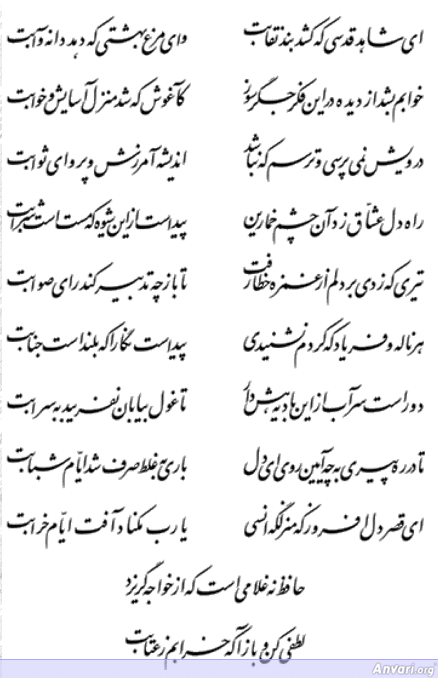 ای شاهد قدسی که کشد بند نقابت وای مرغ بهشتی که دهد دانه و آبت
خوابم بشد از دیده در این فکر جگرسوز کآغوش که شد منزل آسایش و خوابت
درویش نمی‌پرسی و ترسم که نباشد اندیشه آمرزش و پروای ثوابت
راه دل عشاق زد آن چشم خمارین پیداست از این شیوه که مست است شرابت
تیری که زدی بر دلم از غمزه خطا رفت تا باز چه تدبیر کند رای صوابت
هر ناله و فریاد که کردم نشنیدی پیداست نگارا که بلند است جنابت
دور است سر آب از این بادیه هش دار تا غول بیابان نفریبد به سرابت
تا در ره پیری به چه آیین روی ای دل باری به غلط صرف شد ایام شبابت
ای قصر دل افروز که منزلگه انسی یا رب مکناد آفت ایام خرابت
حافظ نه غلامی است که از خواجه گریزد
لطفی کن و بازآ که خرابم ز عتابت
Anvari.org